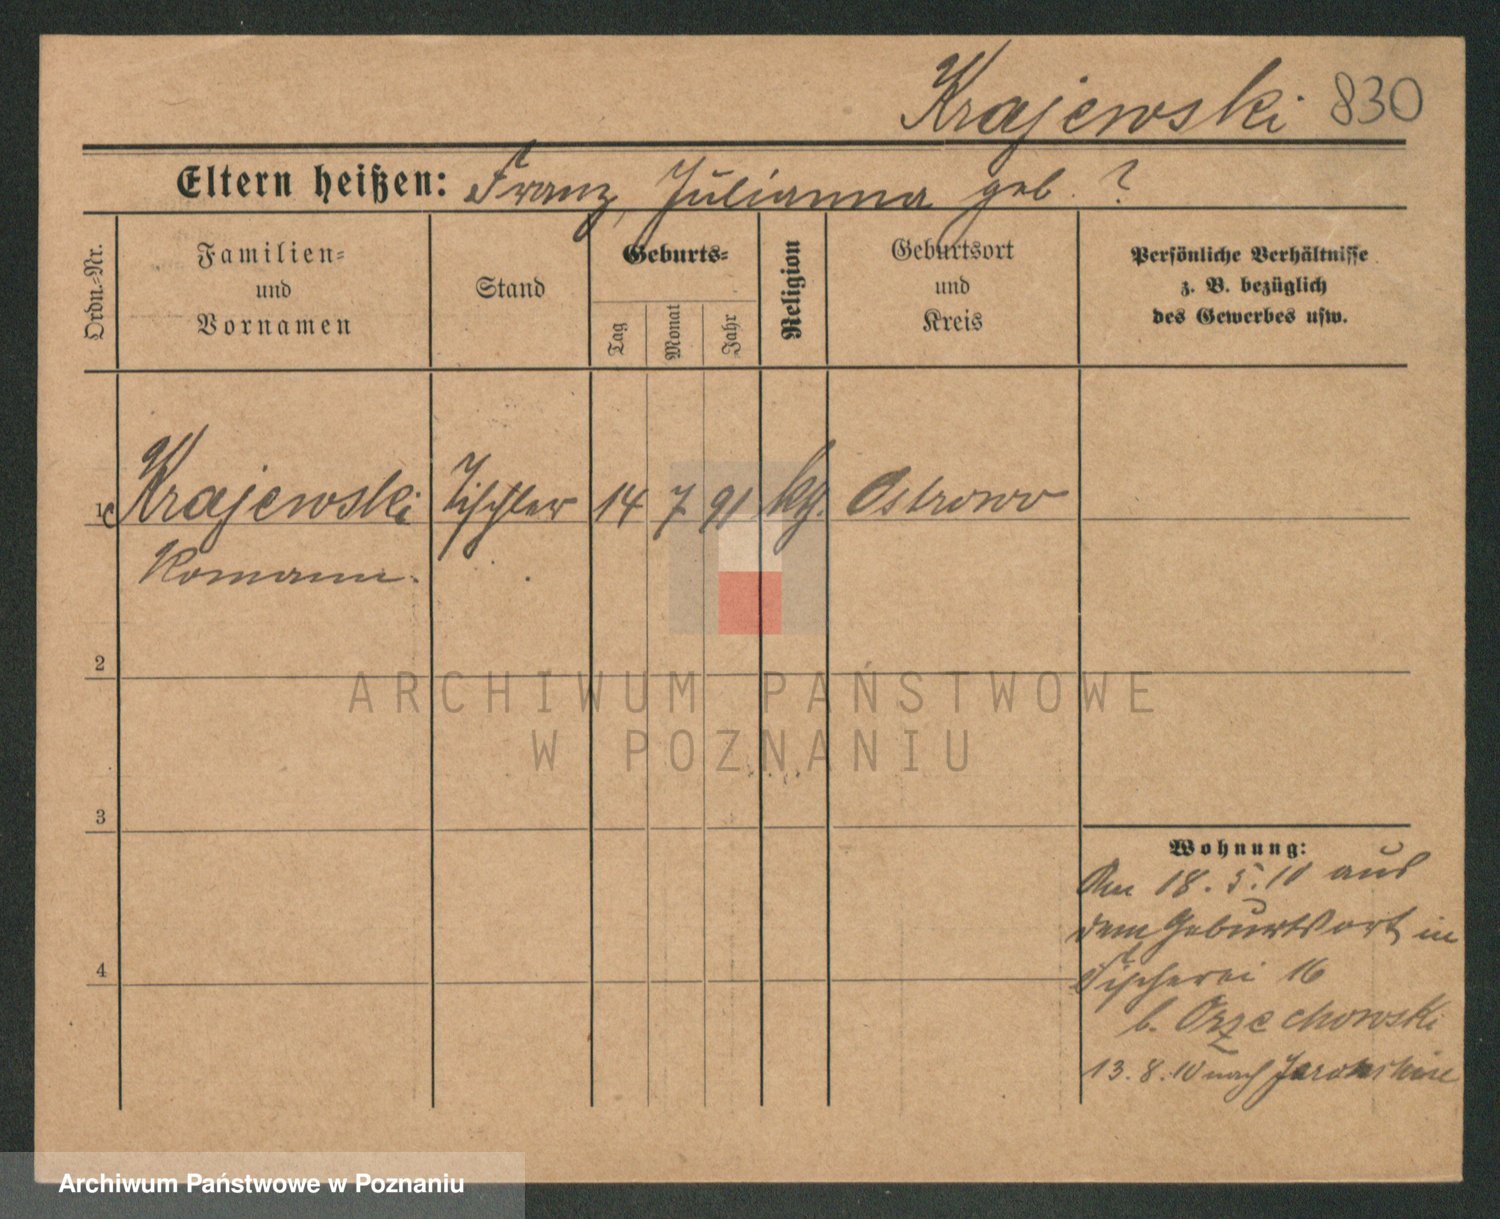 Krajewski 830
Eltern heißen: Franz, Julianna geb. ?
Ordn.-Nr.
Familien- und Vornamen
Stand
Geburts-
Tag
Monat
Jahr
Religion
Geburtsort und Kreis
Persönliche Verhältnisse
z. B. bezüglich
des Gewerbes usw.
1 Krajewski Tischler 14 7 91 kth. Ostrowo
Romann.
2
3
4
ARCHIWUM PAŃSTWOWE
W POZNANIU
Wohnung:
Am 18.5.10 aus
dem Geburtsort in
Fischerei 16
b. Orzechowski
13.8.10 nach
Archiwum Państwowe w Poznaniu